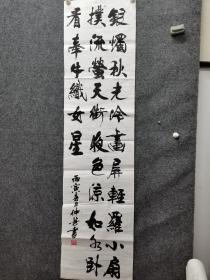 銀燭秋光冷畫屏輕羅小扇
撲流螢天街夜色凉如水卧
看牽牛織女星
丙寅 仲 書